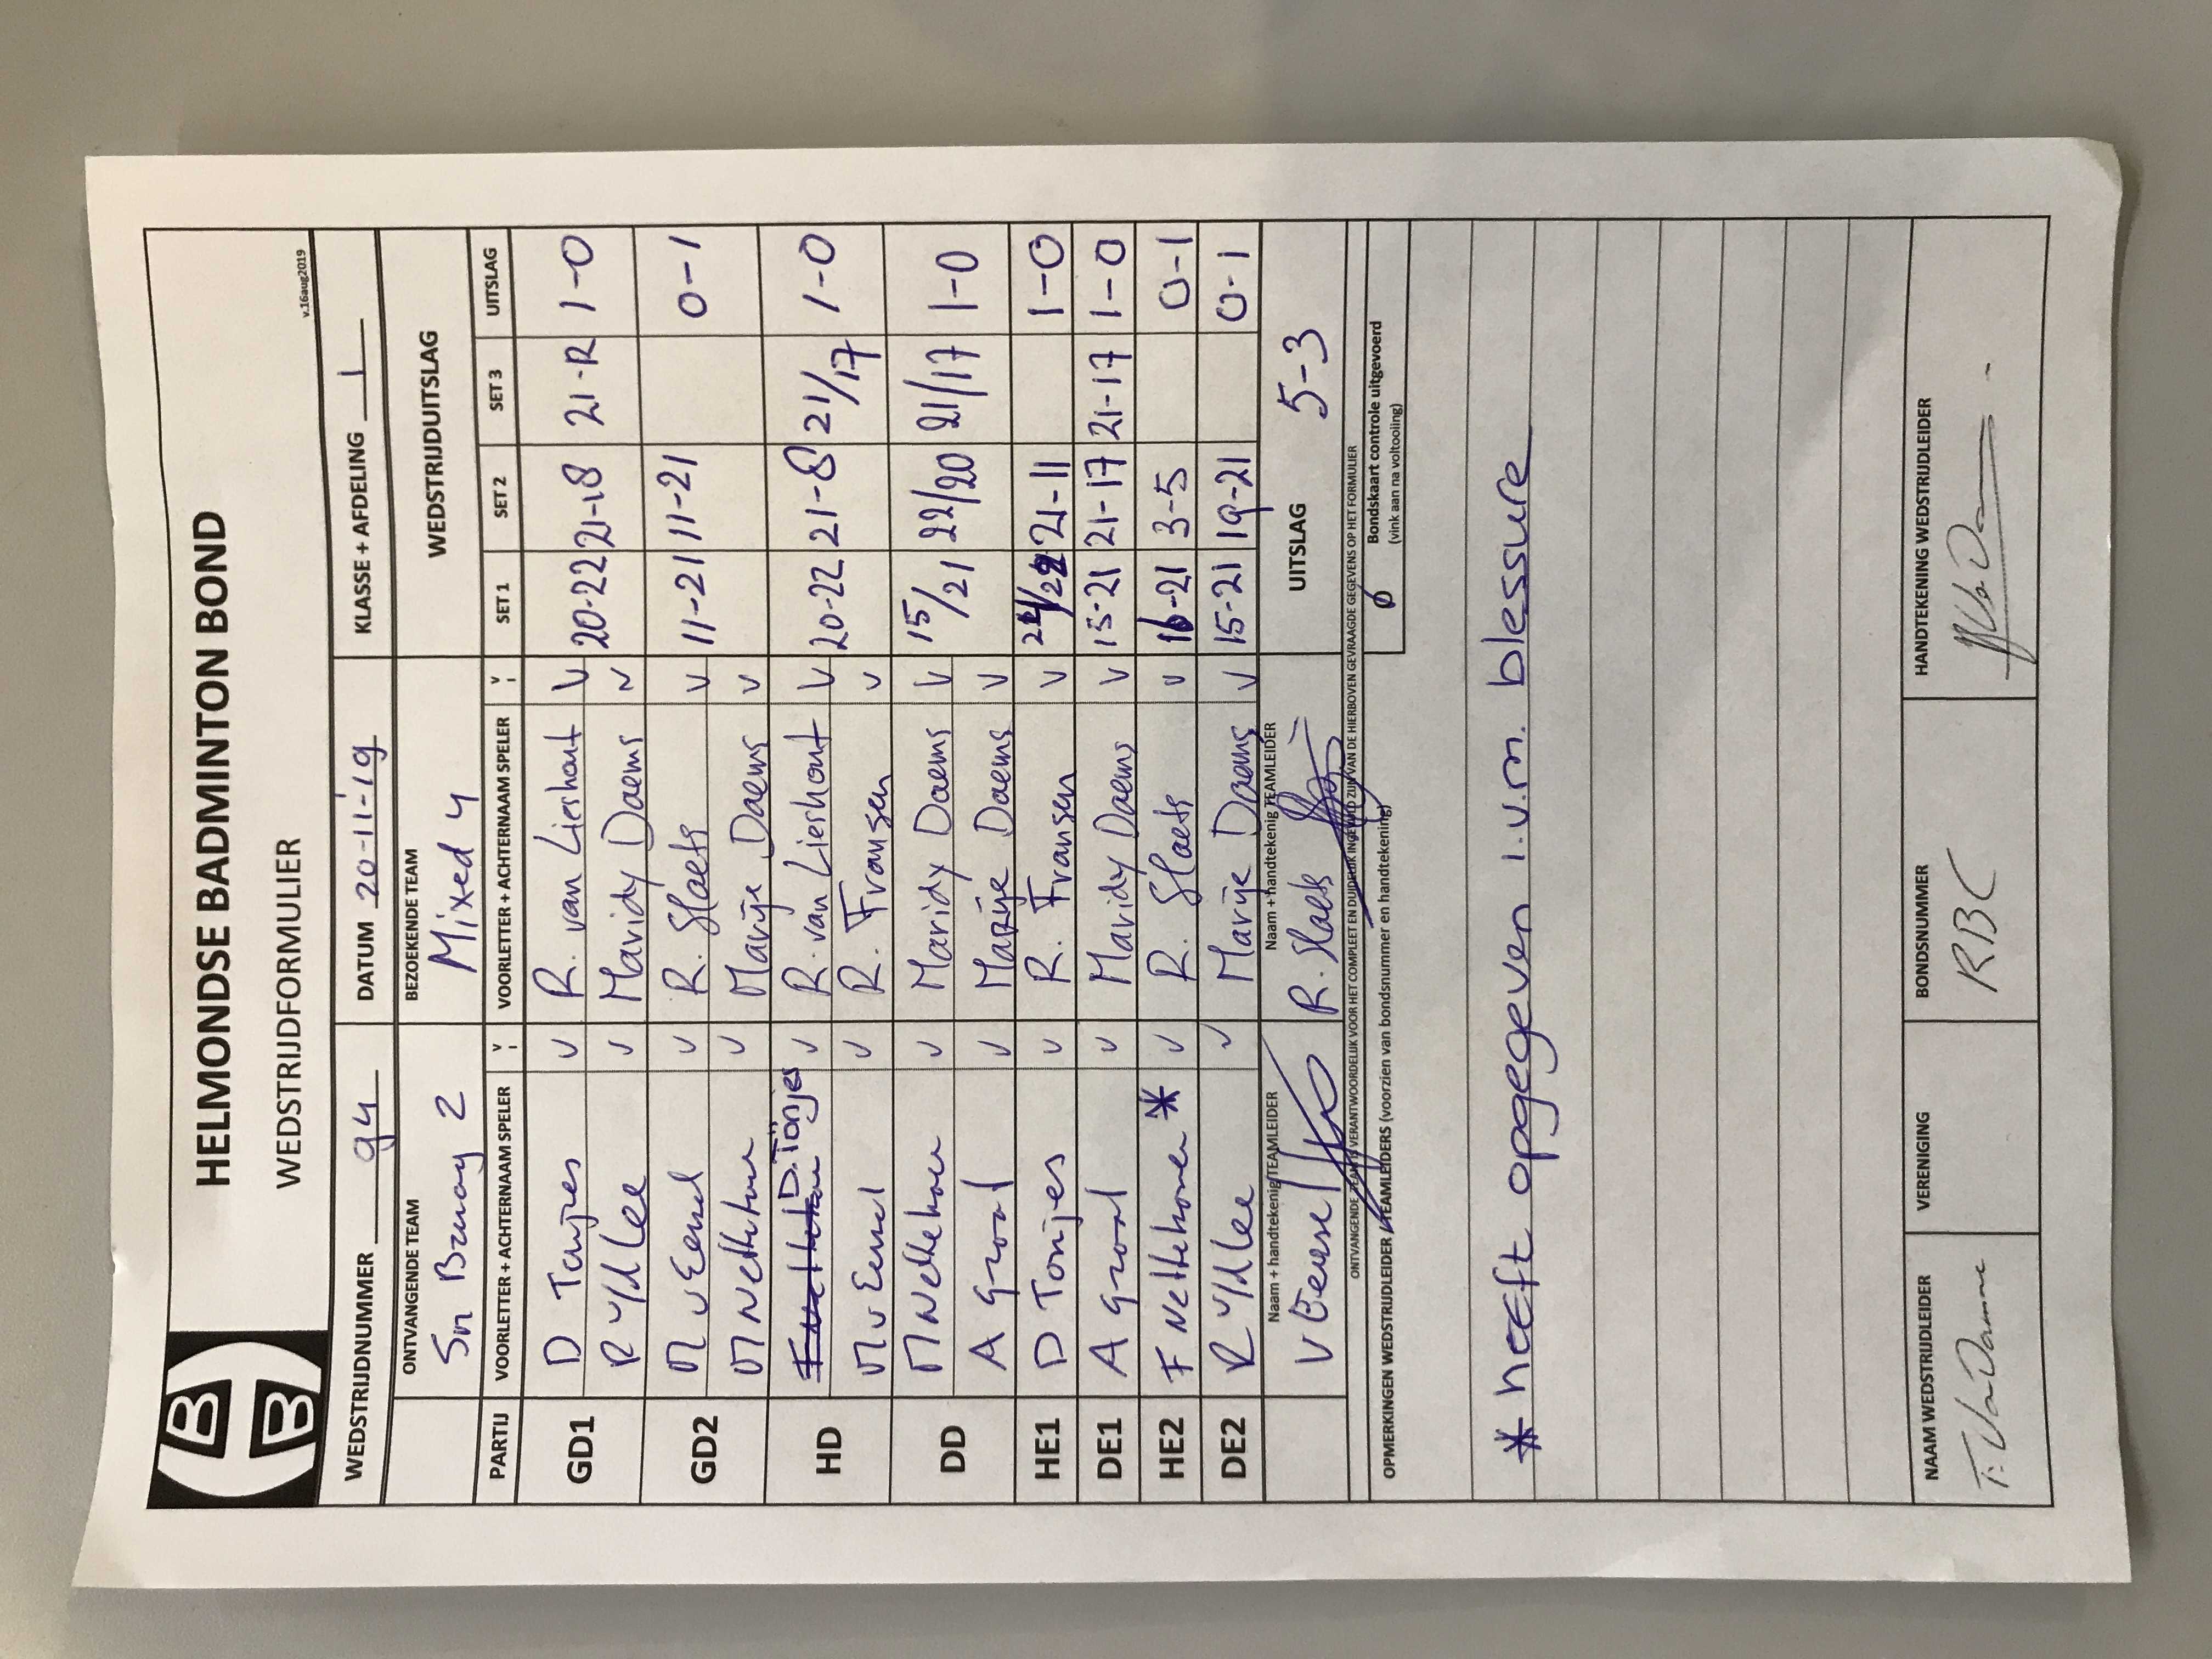 HELMONDSE BADMINTON BOND
WEDSTRIJDFORMULIER
v.16aug2019
WEDSTRIJDNUMMER 94 DATUM 20-11-'19 KLASSE + AFDELING 1
ONTVANGENDE TEAM BEZOEKENDE TEAM WEDSTRIJDUITSLAG
2 Mixed 4
PARTIJ VOORLETTER + ACHTERNAAM SPELER V VOORLETTER + ACHTERNAAM SPELER V SET 1 SET 2 SET 3 UITSLAG
GD1 D Tonjes V R. van Lieshout V 20-22 21-18 21-R 1-0
R vd Lee V Maridy Daems V
GD2 M v Eersel V R. Slaets V 11-21 11-21 0-1
M Nettekoven V Marije Daems V
HD D. Tönjes V R. van Lieshout V 20-22 21-8 21/17 1-0
M v Eersel V R. Fransen V
DD M Nettekoven V Maridy Daems V 15/21 22/20 21/17 1-0
A Graat V Marije Daems V
HE1 D Tonjes V R. Fransen V 24/22 21-11 1-0
DE1 A Graat V Maridy Daems V 15-21 21-17 21-17 1-0
HE2 F Nettekoven * V R. Slaets V 16-21 3-5 0-1
DE2 R vd Lee V Marije Daems V 15-21 19-21 0-1
Naam + handtekenig TEAMLEIDER Naam + handtekenig TEAMLEIDER UITSLAG 5-3
v Eersel R. Slaets
ONTVANGENDE TEAM IS VERANTWOORDELIJK VOOR HET COMPLEET EN DUIDELIJK INGEVULD ZIJN VAN DE HIERBOVEN GEVRAAGDE GEGEVENS OP HET FORMULIER
OPMERKINGEN WEDSTRIJDLEIDER / TEAMLEIDERS (voorzien van bondsnummer en handtekening)
Bondskaart controle uitgevoerd
(vink aan na voltooling)
* heeft opgegeven i.v.m. blessure
NAAM WEDSTRIJDLEIDER VERENIGING BONDSNUMMER HANDTEKENING WEDSTRIJDLEIDER
T. Van Damme RBC